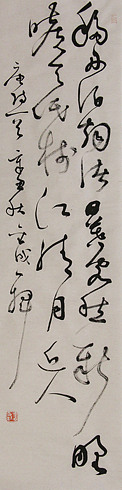 移舟泊烟渚日暮客愁新野
旷天低树江清月近人
唐诗一首辛丑秋